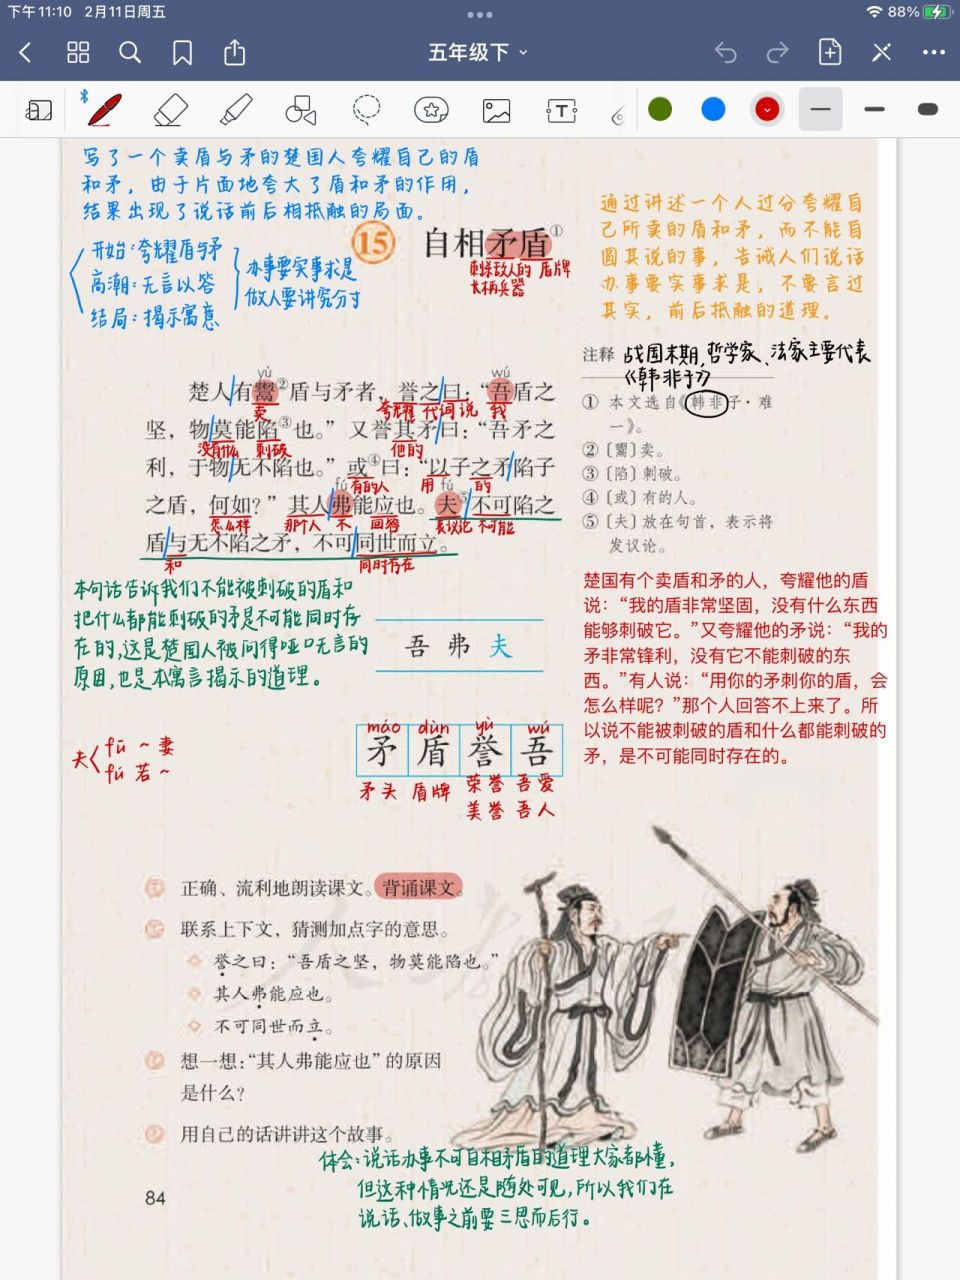 下午11:10 2月11日周五
88%
五年级下
写了一个卖盾与矛的楚国人夸耀自己的盾
和矛，由于片面地夸大了盾和矛的作用，
结果出现了说话前后相抵触的局面。
开始:夸耀盾与矛
高潮:无言以答
结局:揭示寓意
办事要实事求是
做人要讲究分寸
15 自相矛盾①
刺杀敌人的 盾牌
长柄兵器
通过讲述一个人过分夸耀自
己所卖的盾和矛，而不能自
圆其说的事，告诫人们说话
办事要实事求是，不要言过
其实，前后抵触的道理。
yù wú
楚人有鬻②盾与矛者，誉之曰：“吾盾之
卖 夸耀 代词 说 我
坚，物莫能陷③也。”又誉其矛曰：“吾矛之
没有什么 刺破 他的
利，于物无不陷也。”或④曰：“以子之矛陷子
有的人 用 的
fú fú
之盾，何如？”其人弗能应也。夫⑤不可陷之
怎么样 那个人 不 回答 表议论 不可能
盾与无不陷之矛，不可同世而立。
和 同时存在
注释 战国末期,哲学家、法家主要代表
《韩非子》
① 本文选自《韩非子·难
一》。
② 〔鬻〕卖。
③ 〔陷〕刺破。
④ 〔或〕有的人。
⑤ 〔夫〕放在句首，表示将
发议论。
本句话告诉我们不能被刺破的盾和
把什么都能刺破的矛是不可能同时存
在的,这是楚国人被问得哑口无言的
原因,也是本寓言揭示的道理。
吾 弗 夫
楚国有个卖盾和矛的人，夸耀他的盾
说：“我的盾非常坚固，没有什么东西
能够刺破它。”又夸耀他的矛说：“我的
矛非常锋利，没有它不能刺破的东
西。”有人说：“用你的矛刺你的盾，会
怎么样呢？”那个人回答不上来了。所
以说不能被刺破的盾和什么都能刺破的
矛，是不可能同时存在的。
夫
fū ~妻
fú 若~
máo dùn yù wú
矛 盾 誉 吾
矛头 盾牌 荣誉 吾爱
美誉 吾人
正确、流利地朗读课文。背诵课文。
联系上下文，猜测加点字的意思。
誉之曰：“吾盾之坚，物莫能陷也。”
其人弗能应也。
不可同世而立。
想一想：“其人弗能应也”的原因
是什么？
用自己的话讲讲这个故事。
体会:说话办事不可自相矛盾的道理大家都懂,
但这种情况还是随处可见,所以我们在
说话、做事之前要三思而后行。
84